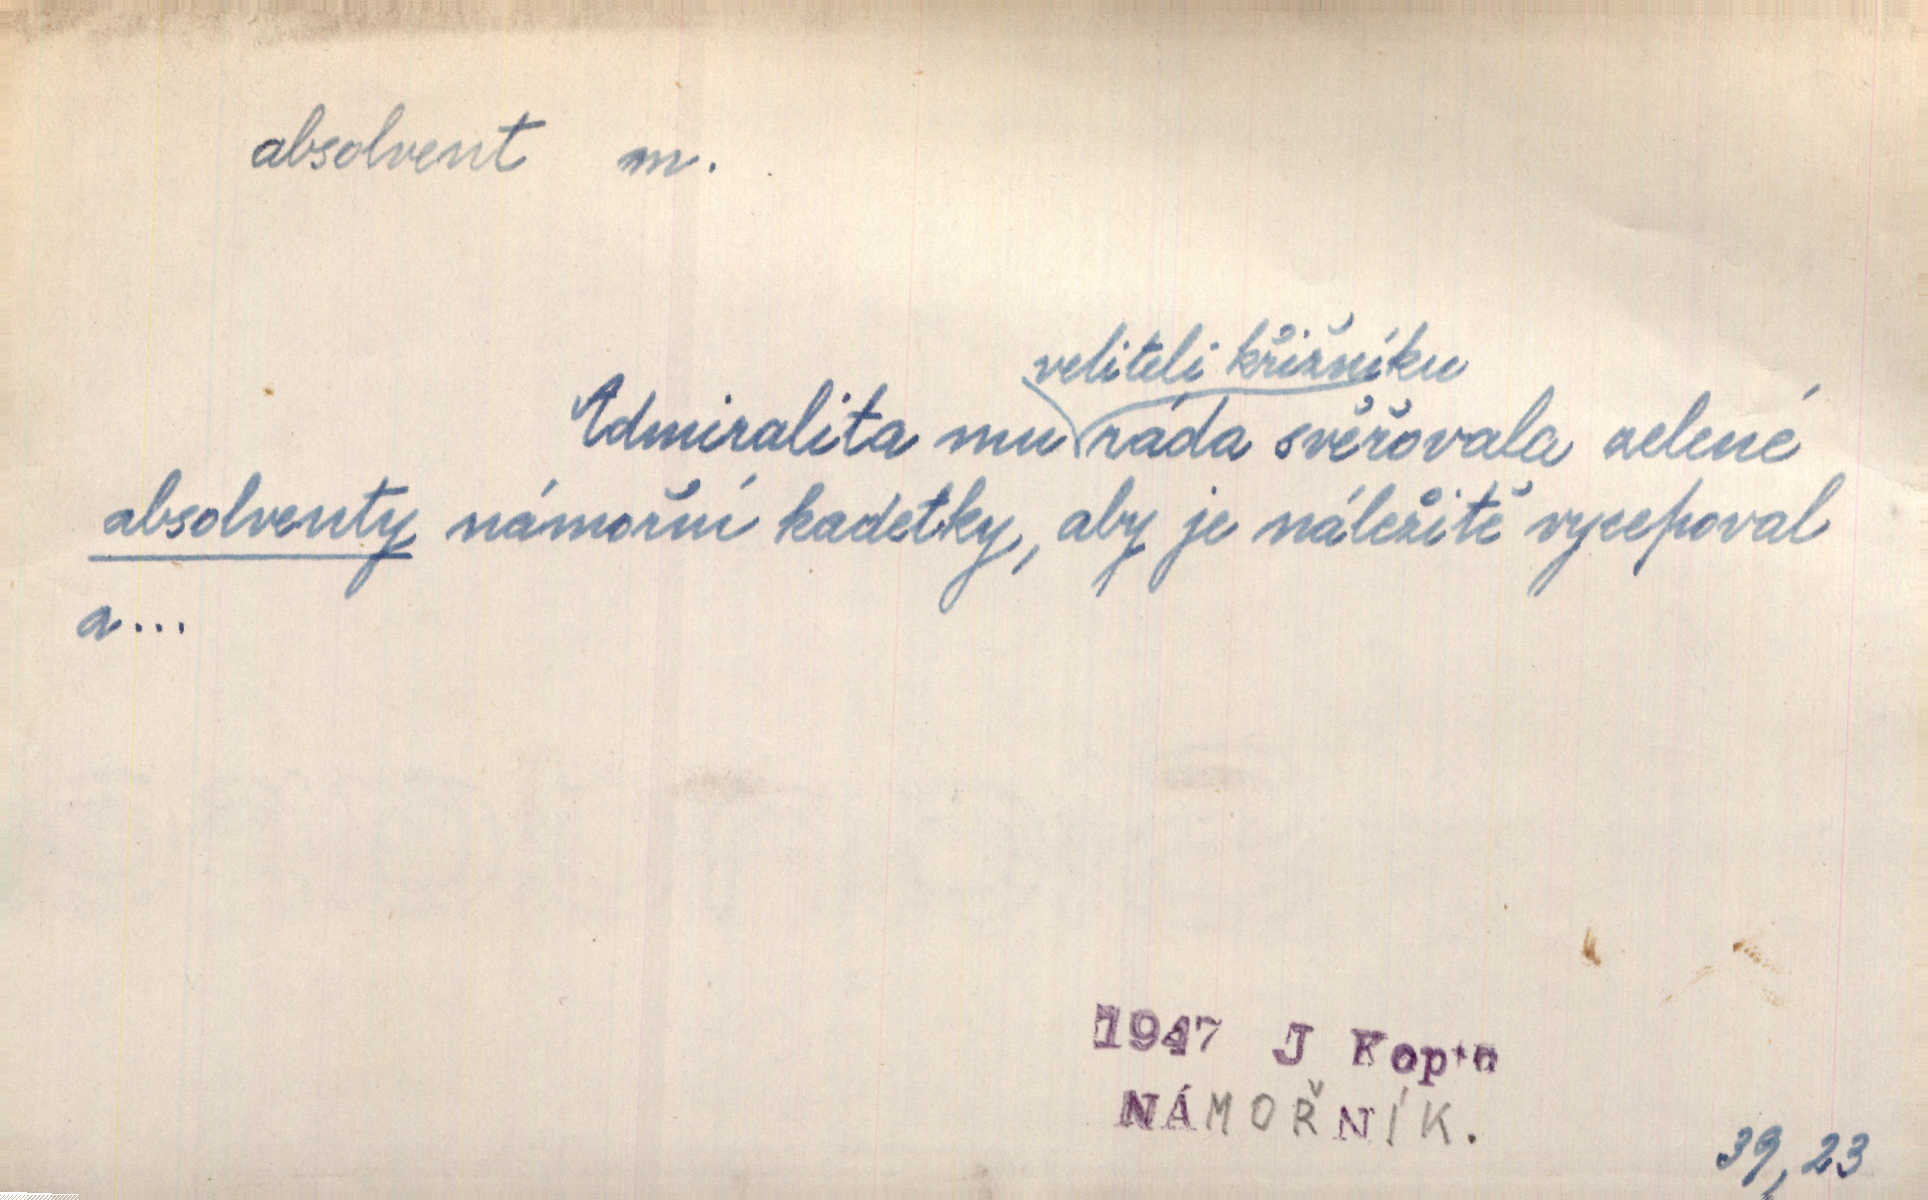 absolvent m.
veliteli křižníku
Admiralita mu ráda svěřovala zelené
absolventy námořní kadetky, aby je náležitě vycepoval
a...
1947 J Kopta
NÁMOŘNÍK.
39,23